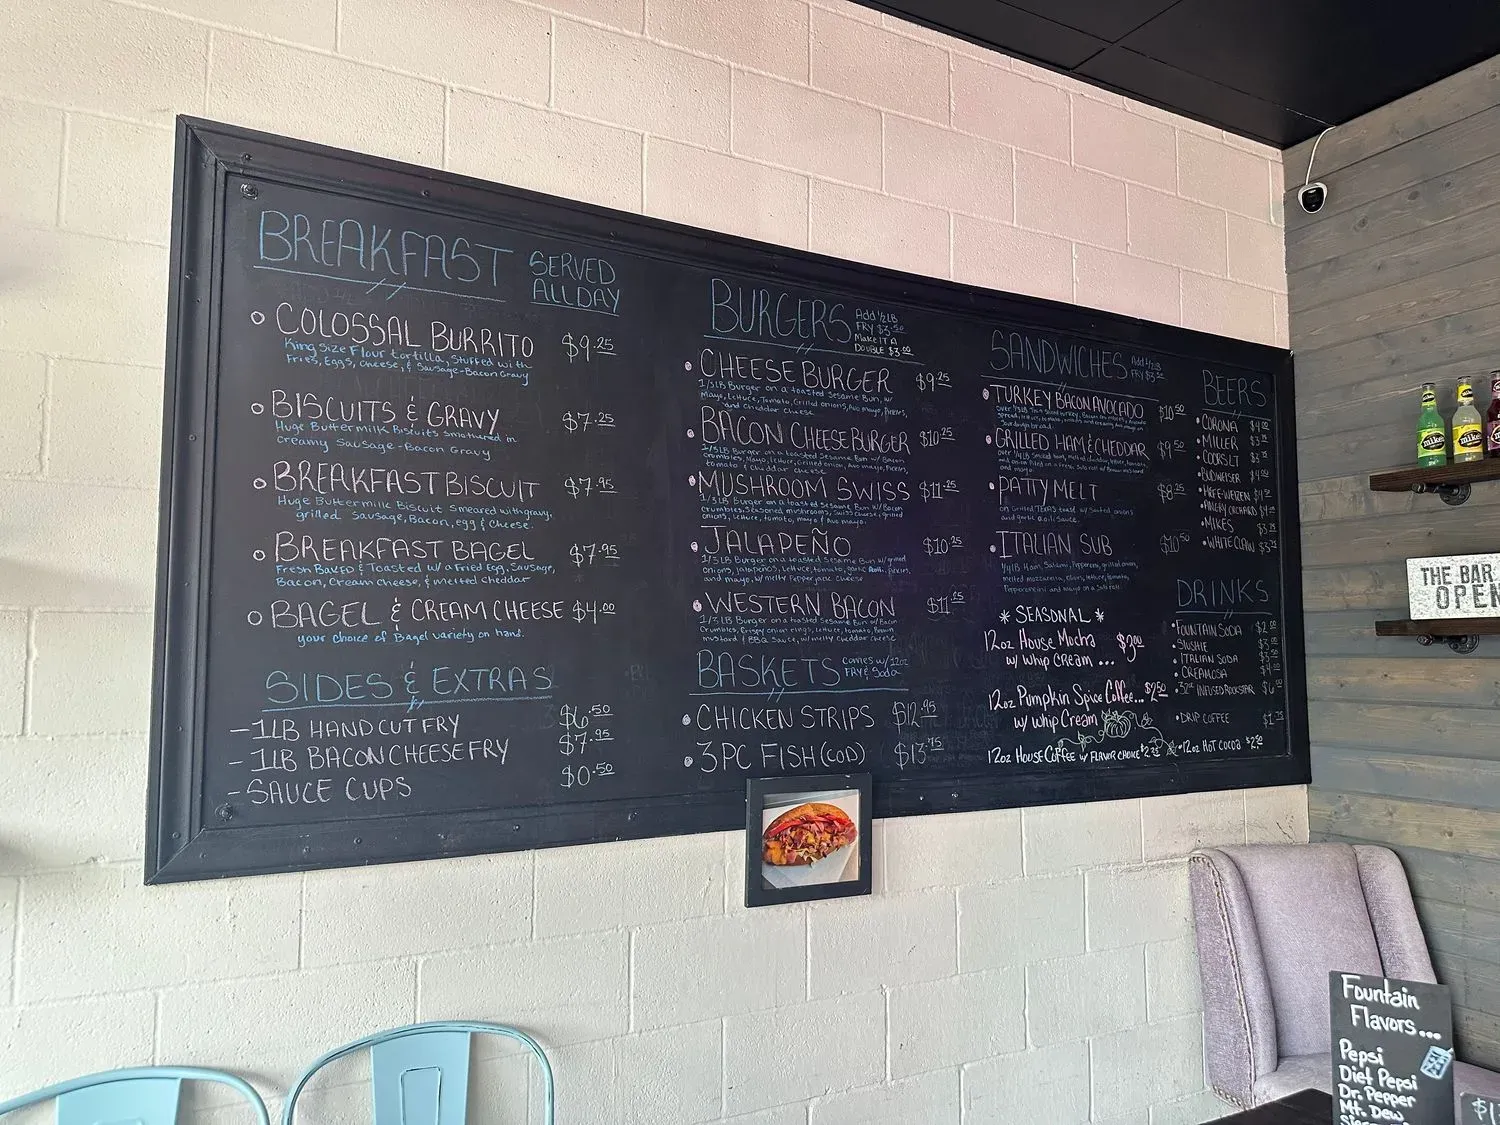 BREAKFAST SERVED
ALL DAY
COLOSSAL BURRITO $9.25
King Size Flour tortilla, Stuffed with
Fries, Eggs, cheese, & Sausage-Bacon Gravy
BISCUITS & GRAVY $7.25
Huge Buttermilk Biscuits smothered in
creamy Sausage-Bacon Gravy
BREAKFAST BISCUIT $7.95
Huge Buttermilk Biscuit smeared with gravy,
grilled Sausage, Bacon, egg & cheese.
BREAKFAST BAGEL $7.95
Fresh Baked & Toasted w/ a Fried Egg, Sausage,
Bacon, Cream cheese, & melted cheddar
BAGEL & CREAM CHEESE $4.00
your choice of Bagel variety on hand.
SIDES & EXTRAS
- 1LB HAND CUT FRY $6.50
- 1LB BACON CHEESE FRY $7.95
- SAUCE CUPS $0.50
BURGERS
Add 1/2 LB
FRY $3.50
Make IT A
DOUBLE $3.00
CHEESE BURGER $9.25
1/3LB Burger on a toasted Sesame Bun, w/
Mayo, Lettuce, Tomato, Grilled onions, Avo mayo, Pickles,
and Cheddar cheese
BACON CHEESEBURGER $10.25
1/3LB Burger on a toasted Sesame Bun w/ Bacon
crumbles, Mayo, lettuce, Grilled onion, Avo mayo, Pickles,
tomato & cheddar cheese
MUSHROOM SWISS $11.25
1/3LB Burger on a toasted Sesame Bun w/ Bacon
crumbles, Seasoned mushrooms, Swiss cheese, grilled
onions, lettuce, tomato, mayo & Avo mayo.
JALAPEÑO $10.25
1/3LB Burger on a toasted Sesame Bun w/ grilled
onions, jalapeños, lettuce, tomato, garlic aioli, Pickles,
and mayo, w/ melty Pepperjack cheese
WESTERN BACON $11.25
1/3LB Burger on a toasted Sesame Bun w/ Bacon
Crumbles, Crispy onion rings, Lettuce, tomato, Brown
mustard & BBQ Sauce, w/ melty cheddar cheese
BASKETS
comes w/ 12oz
FRY & Soda
CHICKEN STRIPS $12.95
3PC FISH (COD) $13.75
SANDWICHES
Add 1/2LB
FRY $3.50
TURKEY BACON AVOCADO $10.50
GRILLED HAM & CHEDDAR $9.50
PATTY MELT $8.25
on Grilled Texas toast w/ Sauted onions
and garlic aioli Sauce.
ITALIAN SUB $10.50
1/4LB Ham, Salami, Pepperoni, grilled onion,
melted mozzarella, olives, lettuce, tomato,
Pepperoncini and mayo on a
* SEASONAL *
12oz House Mocha $3.00
w/ whip cream ...
12oz Pumpkin Spice Coffee... $2.50
w/ whip Cream
12oz House Coffee w/ FLAVOR CHOICE $2.25
BEERS
CORONA $4.00
MILLER
COORS LT
BUDWEISER
HEFE-WEIZEN
ANGRY ORCHARD
MIKES
WHITE CLAW
DRINKS
FOUNTAIN SODA
SLUSHIE
ITALIAN SODA
CREAMOSA
32oz INFUSED ROCKSTAR
DRIP COFFEE
12oz HOT COCOA $2.50
mike's
mike's
THE BAR
OPEN
Fountain
Flavors...
Pepsi
Diet Pepsi
Dr. Pepper
Mt. Dew